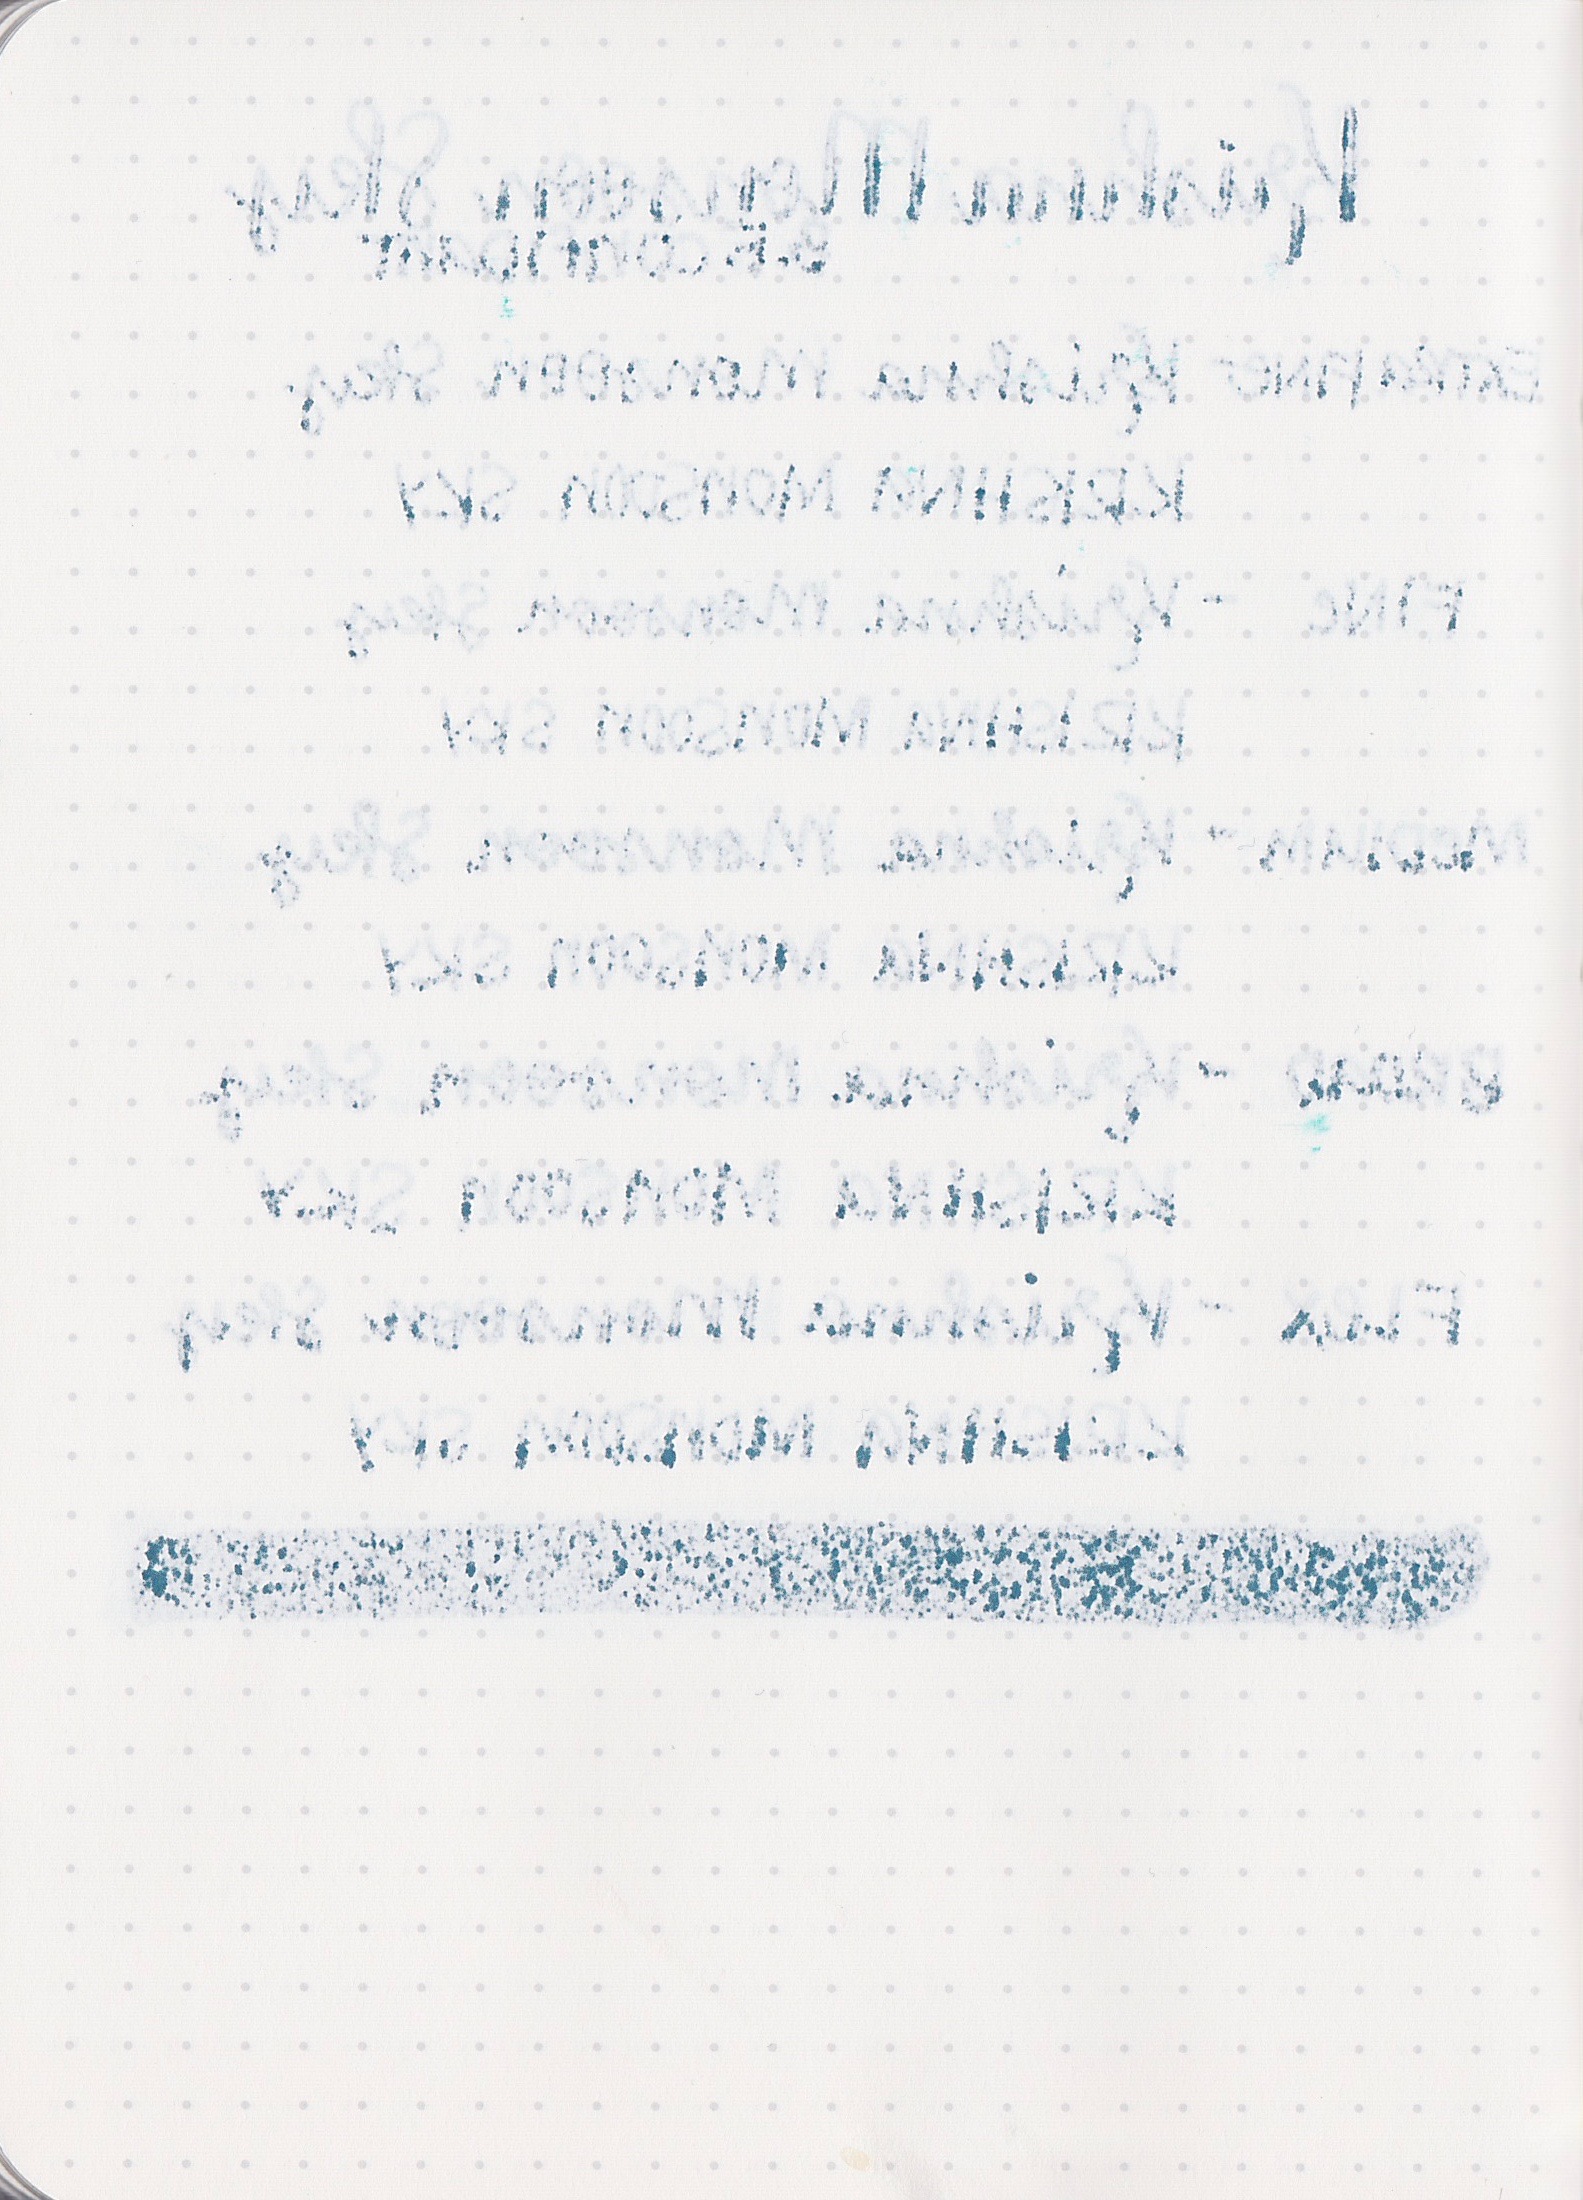 Krishna Monsoon Sky
EXTRA FINE - Krishna Monsoon Sky
KRISHNA MONSOON SKY
FINE - Krishna Monsoon Sky
KRISHNA MONSOON SKY
MEDIUM - Krishna Monsoon Sky
KRISHNA MONSOON SKY
BROAD - Krishna Monsoon Sky
KRISHNA MONSOON SKY
FLEX - Krishna Monsoon Sky
KRISHNA MONSOON SKY